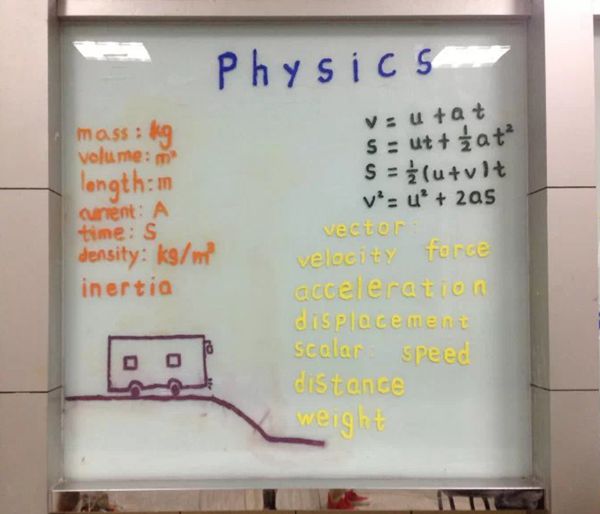 Physics
mass: kg
volume: m³
length: m
current: A
time: S
density: kg/m³
inertia
v = u + at
s = ut + ½at²
s = ½(u+v)t
v² = u² + 2as
vector:
velocity force
acceleration
displacement
scalar: speed
distance
weight